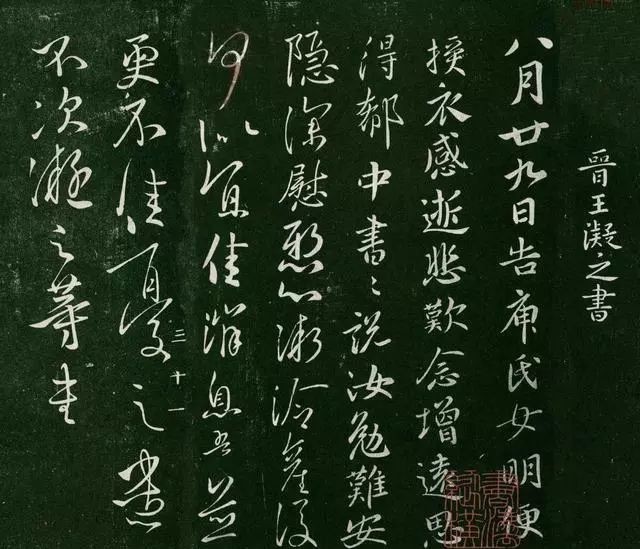 晉王凝之書
八月廿九日告庾氏女明便
授衣感逝悲歎念增遠思
得郗中書書說汝勉難安
隱深慰懸心漸冷產後
何似宜佳消息吾並
更不佳憂之
三十一
不次凝之等書